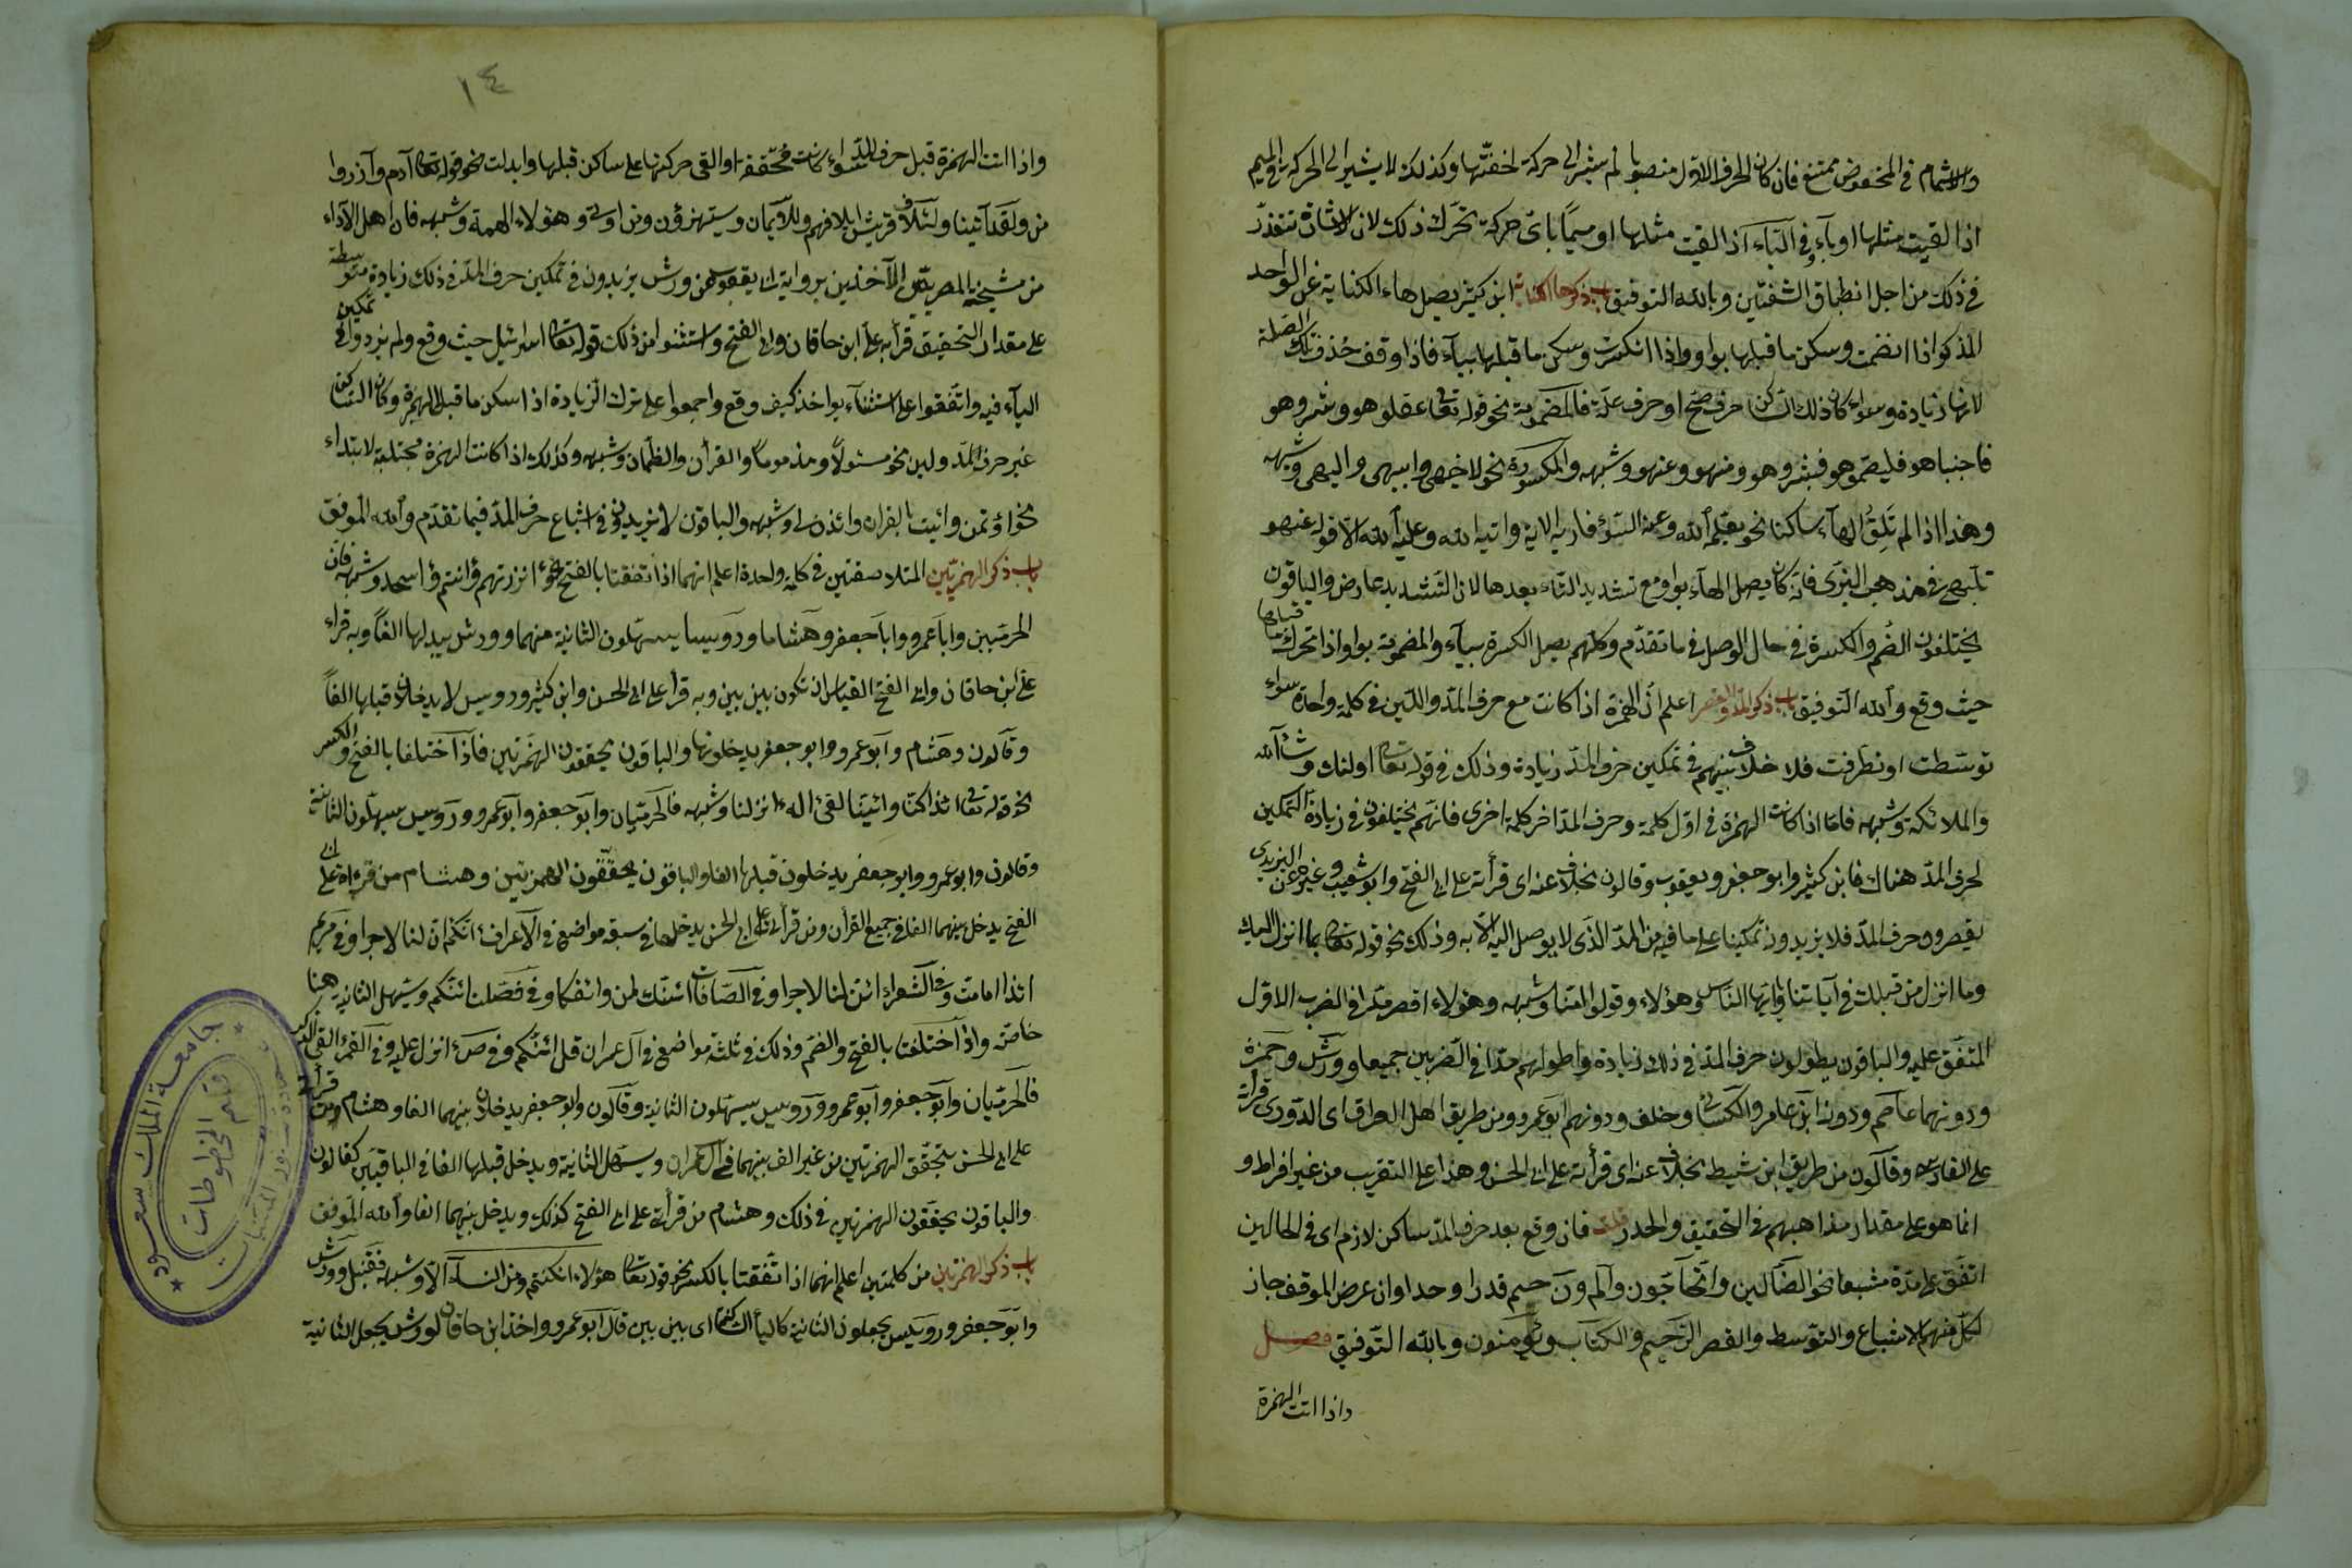 والاشمام في المخفوض ممتنع فان كان الحرف الاول منصوبا لم يشر الى حركة لخفتها وكذلك لا يشير الى الحركة في الميم
اذا لقيت مثلها او باء وفي الباء اذا لقيت مثلها او ميما باى حركة تحرك ذلك لان الاشارة تتعذر
في ذلك من اجل انطباق الشفتين وبالله التوفيق باب ذكر هاء الكناية ابن كثير يصل هاء الكناية عن الواحد
المذكر اذا انضمت وسكن ما قبلها بواو واذا انكسرت وسكن ما قبلها بياء فاذا وقف حذف تلك الصلة
لانها زيادة وسواء كان ذلك الساكن حرف صح او حرف علة فالمضمومة نحو قوله تعا عقلوهو وشروهو
فاجتباهو فليصمهو فبشرهو ومنهو وعنهو وشبهه والمكسورة نحو لاخيهى وابيهى واليهى وشبهه
وهذا اذا لم تلق الهاء ساكنا نحو يعلمه الله وعنه السوء فاريه الاية واتيه الله وعليه الله الا قوله عنهو
تلهى في مذهب البزى فانه كان يصل الهاء بواو مع تشديد التاء بعدها لان التشديد عارض والباقون
يختلفون الضم والكسرة في حال الوصل في ما تقدم وكلهم يصل الكسرة بياء والمضمومة بواو اذا تحرك ما قبلها
حيث وقع وبالله التوفيق باب ذكر المد والقصر اعلم ان الهمزة اذا كانت مع حرف المد واللين في كلمة واحدة سواء
توسطت او تطرفت فلا خلاف بينهم في تمكين حرف المد زيادة وذلك في قوله تعا اولئك وشاء الله
والملائكة وشبهه فاما اذا كانت الهمزة في اول كلمة وحرف المد اخر كلمة اخرى فانهم يختلفون في زيادة التمكين
لحرف المد هناك فابن كثير وابو جعفر ويعقوب وقالون بخلاف عنه اى قرأته على ابى الفتح وابو شعيب وغيره عن اليزيدى
يقصرون حرف المد فلا يزيدونه تمكينا على ما فيه من المد الذى لا يوصل اليه الا به وذلك نحو قوله تعا بما انزل اليك
وما انزل من قبلك في آياتنا يا ايها الناس هؤلاء وقولوا امنا وشبهه وهؤلاء اقصر مدا في الضرب الاول
المتفق عليه والباقون يطولون حرف المد في ذلك زيادة واطولهم مدا في الضربين جميعا ورش وحمزة
ودونهما عاصم ودونه ابن عامر والكسائى وخلف ودونهم ابو عمرو من طريق اهل العراق اى الدورى قرأة
على الفارسى وقالون من طريق ابن نشيط بخلاف عنه اى قرأته على ابى الحسن وهذا على التقريب من غير افراط و
انما هو على مقدار مذاهبهم في التحقيق والحدر قلت فان وقع بعد حرف المد ساكن لازم اى في الحالين
اتفق على مده مشبعا نحو الضالين واتحاجون والم ون حم قدرا وحدا وان عرض الموقف جاز
لكل منهم الاشباع والتوسط والقصر الرحيم والكتاب ويؤمنون وبالله التوفيق فصل
واذا اتت الهمزة
١٤
واذا اتت الهمزة قبل حرف المد سواء كانت محققة او القى حركتها على ساكن قبلها وابدلت نحو قوله تعا آدم وآزر وا
من ولقد آتينا ولئلاف قريش ايلافهم وللايمان ويستهزؤن ومن اوتى وهؤلاء الهة وشبهه فان اهل الآداء
من مشيخة المصريين الآخذين برواية ابى يعقوب عن ورش يزيدون في تمكين حرف المد في ذلك زيادة متوسطة
على مقدار التحقيق قرأ به على ابن خاقان وابى الفتح واستثنوا من ذلك قوله تعا اسرائيل حيث وقع ولم يزيدوا في تمكين
الياء فيه واتفقوا على استثناء يواخذ كيف وقع واجمعوا على ترك الزيادة اذا سكن ما قبل الهمزة وكان الساكن
غير حرف المد ولين نحو مسئولا ومذموما والقرأن والظمأن وشبهه وكذلك اذا كانت الهمزة مجتلبة لابتداء
نحو اؤتمن وائيت بالقران وائذن لى وشبهه والباقون لا يزيدون في اشباع حرف المد فيما تقدم والله الموفق
باب ذكر الهمزتين المتلاصقتين في كلمة واحدة اعلم انهما اذا اتفقتا بالفتح نحو ءانذرتهم ءانتم ءاسجد وشبهه فان
الحرميين وابا عمرو وابا جعفر وهشاما ورويسا يسهلون الثانية منهما وورش يبدلها الفا وبه قراء
على ابن خاقان وابى الفتح القياس ان تكون بين بين وبه قرأ على ابى الحسن وابن كثير ورويس لا يدخلان قبلها الفا
وقالون وهشام وابو عمرو وابو جعفر يدخلونها والباقون يحققون الهمزتين فاذا اختلفا بالفتح والكسر
نحو قوله تعا ائذا كنا وائيتنا لقى اءله ءانزلنا وشبهه فالحرميان وابو جعفر وابو عمرو ورويس يسهلون الثانية
وقالون وابو عمرو وابو جعفر يدخلون قبلها الفا والباقون يحققون الهمزتين وهشام من قراءته على ابى
الفتح يدخل بينهما الفا في جميع القرأن ومن قرأته على ابى الحسن يدخلها في سبعة مواضع في الاعراف ءانكم ان لنا لاجرا وفي مريم
ائذا ما مت وفي الشعراء ائن لنا لاجرا وفي الصافات ائنك لمن وائفكا وفي فصلت ائنكم ويسهل الثانية هنا
خاصة واذا اختلفتا بالفتح والضم وذلك في ثلثة مواضع في آل عمران قل ائنبكم وفي ص ءانزل عليه وفي القمر ءالقى الذكر
فالحرميان وابو جعفر وابو عمرو ورويس يسهلون الثانية وقالون وابو جعفر يدخلان بينهما الفا وهشام من قرأته
على ابى الحسن يحقق الهمزتين من غير الف بينهما في آل عمران ويسهل الثانية ويدخل قبلها الفا في الباقيين كقالون
والباقون يحققون الهمزتين في ذلك وهشام من قرأته على ابى الفتح كذلك ويدخل بينهما الفا والله الموفق
باب ذكر الهمزتين من كلمتين اعلم انهما اذا اتفقتا بالكسر نحو قوله تعا هؤلاء ان كنتم ومن النساء الا وشبهه فقنبل وورش
وابو جعفر ورويس يجعلون الثانية كالياء الساكنة اى بين بين قال ابو عمرو واخذ ابن خاقان لورش يجعل الثانية
جامعة الملك سعود
قسم المخطوطات